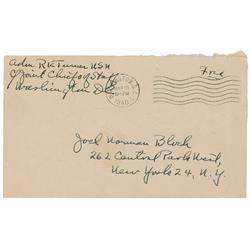 Adm RK Turner USN
Joint Chiefs of Staff
Washington DC
Free
Joel Norman Block
262 Central Park West,
New York 24, N.Y.